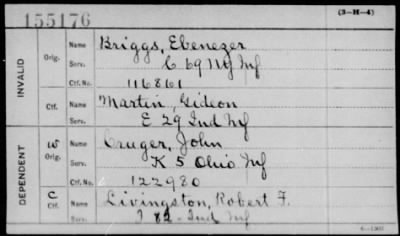 155176
(3-H-4)
INVALID
Orig.
Name Briggs, Ebenezer
Serv. C 69 NY Inf
Ctf. No. 116861
Ctf.
Name Martin, Gideon
Serv. E 29 Ind Inf
DEPENDENT
W
Orig.
Name Cruger, John
Serv. K 5 Ohio Inf
Ctf. No. 122980
C
Ctf.
Name Livingston, Robert F.
Serv. I 82 - Ind Inf